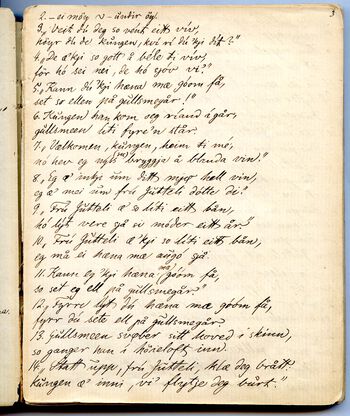 3
2. – ei möy v – ündir öy.
3, „Veit dú deg so vent eitt viv,
höyr dú de küngen, kvi ri dú kji dit?"
4, „De æ kji so gott å bêle ti viv,
för hó sei nei, de hó sjöv vi?"
5, „Kann dú kji hæna mæ góom få,
set so ellen på güllsmegår!"
6. Küngen han kom og riand i går,
güllsmeen úti fyre'n står.
7, „Velkomen, küngen, heim ti mó,
nö hev eg nytt bryggja å blanda vin."
8, „Eg æ inkji úm ditt mjø hell vin,
eg æ mei úm frú Gütteli dötte di?"
9, „Frú Gütteli æ so liti eitt bân,
hó lyt vere gå si móder eitt år."
10, „Frú Gütteli æ kji so liti eitt bân,
eg må ei hæna mæ augó gå.
11. Kann eg kji hæna mæ góom få,
so set eg ell på güllsmegår."
12, „Fyrre lyt dú hæna mæ góom få,
fyrr dú sete ell på güllsmegår."
13. Güllsmeen svøber sitt hoved i skinn,
so ganger hun i höieloft inn.
14, „Statt üpp, frú Gütteli, klæ deg brått!
Küngen æ inni, vi' flytje deg burt."